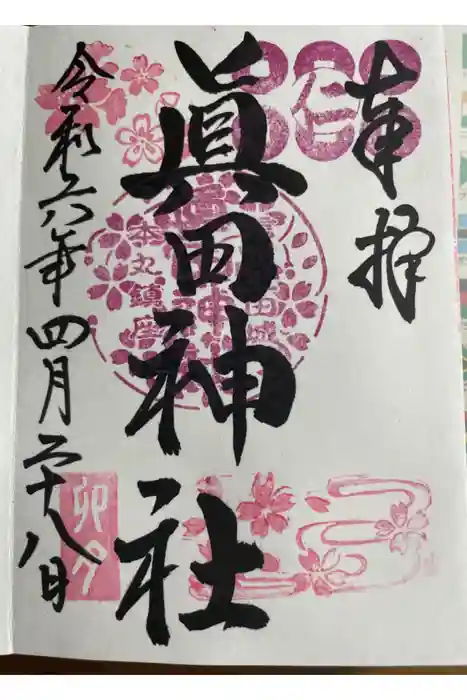 奉拝
眞田神社
令和六年四月二十八日
仁
本丸鎮座
卯月